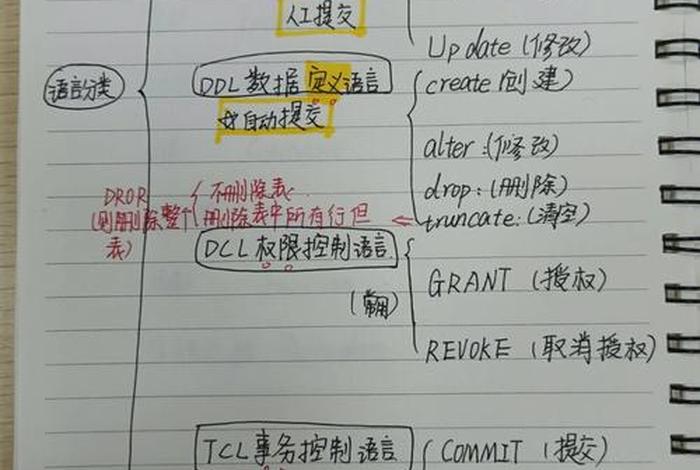 人工提交
Update (修改)
语言分类
DDL 数据定义语言
自动提交
create (创建)
alter: (修改)
drop: (删除)
truncate: (清空)
DROR
(则删除整个
表)
不删除表
删除表中所有行但
DCL 权限控制语言
(常用)
GRANT (授权)
REVOKE (取消授权)
TCL 事务控制语言
COMMIT (提交)